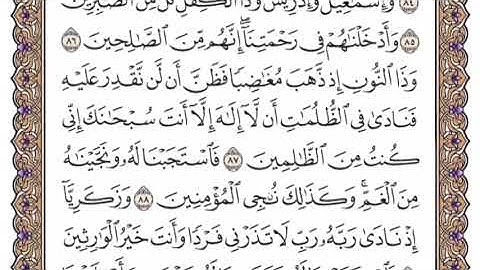 ﴿٨٤﴾ وَإِسْمَٰعِيلَ وَإِدْرِيسَ وَذَا ٱلْكِفْلِ كُلٌّ مِّنَ ٱلصَّٰبِرِينَ
﴿٨٥﴾ وَأَدْخَلْنَٰهُمْ فِى رَحْمَتِنَآ إِنَّهُم مِّنَ ٱلصَّٰلِحِينَ ﴿٨٦﴾
وَذَا ٱلنُّونِ إِذ ذَّهَبَ مُغَٰضِبًا فَظَنَّ أَن لَّن نَّقْدِرَ عَلَيْهِ
فَنَادَىٰ فِى ٱلظُّلُمَٰتِ أَن لَّآ إِلَٰهَ إِلَّآ أَنتَ سُبْحَٰنَكَ إِنِّى
كُنتُ مِنَ ٱلظَّٰلِمِينَ ﴿٨٧﴾ فَٱسْتَجَبْنَا لَهُۥ وَنَجَّيْنَٰهُ
مِنَ ٱلْغَمِّ وَكَذَٰلِكَ نُۨجِى ٱلْمُؤْمِنِينَ ﴿٨٨﴾ وَزَكَرِيَّآ
إِذْ نَادَىٰ رَبَّهُۥ رَبِّ لَا تَذَرْنِى فَرْدًا وَأَنتَ خَيْرُ ٱلْوَٰرِثِينَ